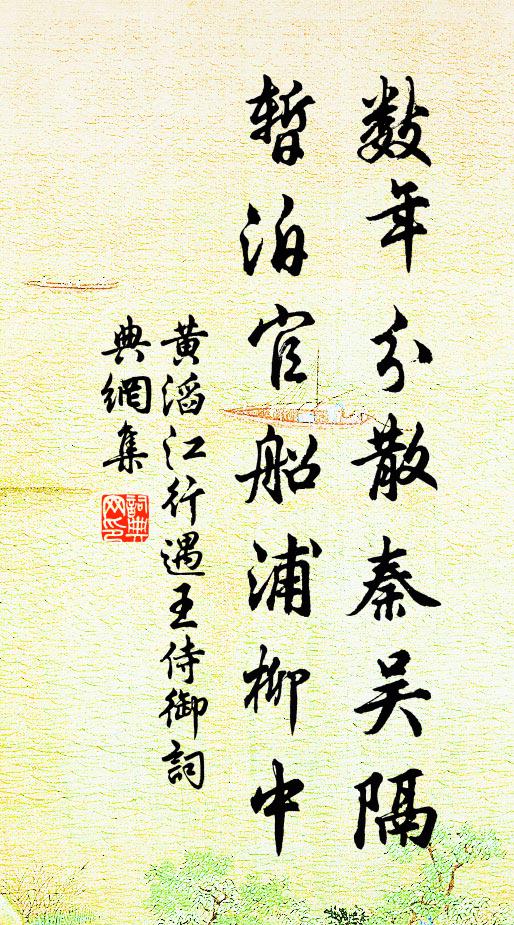 數年分散秦吳隔
暫泊官船浦柳中
黃滔江行遇王侍御詞
典網集
詞典
网印